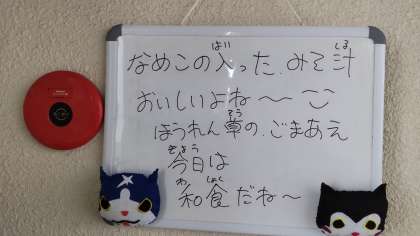 なめこの入った.みそ汁
おいしいよね〜
ほうれん草の.ごまあえ
今日は
和食だね〜